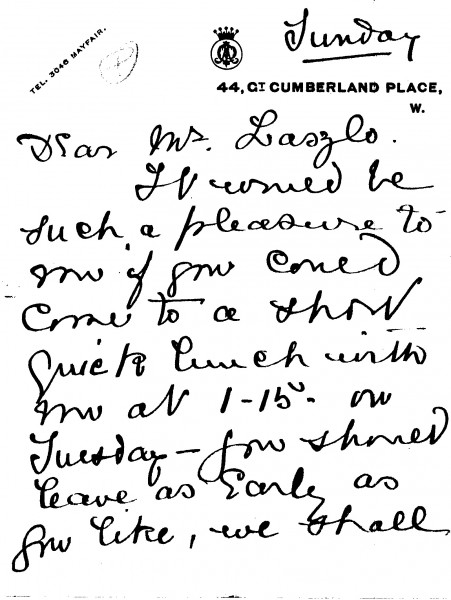 Sunday
TEL. 3046 MAYFAIR.
44, GT CUMBERLAND PLACE,
W.
Dear Mr. Laszlo.
It would be
such a pleasure to
me if you could
come to a short
quick lunch with
me at 1-15. on
Tuesday – you should
leave as Early as
you like, we shall